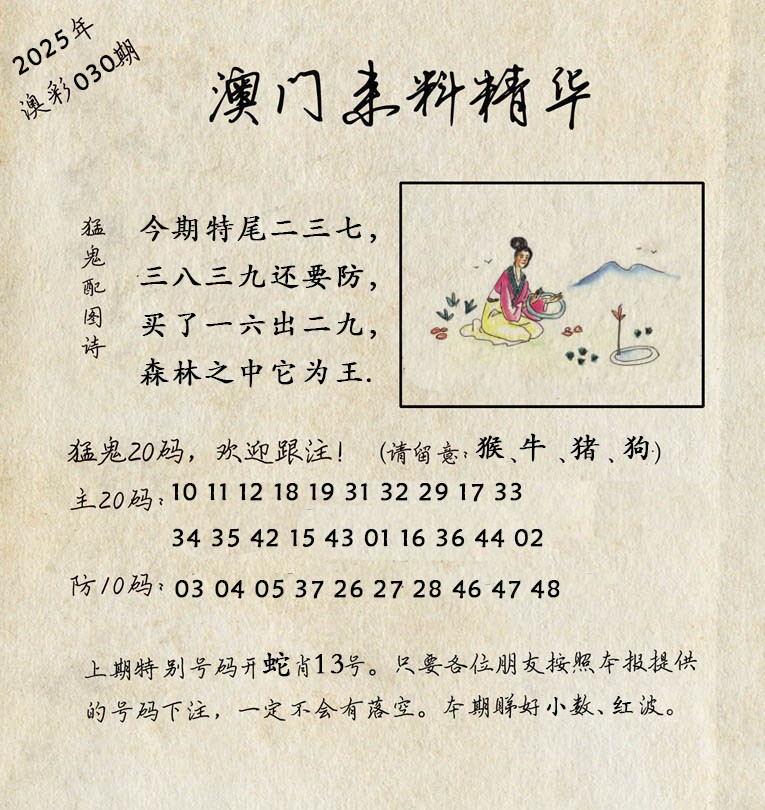 2025年
澳彩030期
澳门来料精华
猛鬼配图诗
今期特尾二三七，
三八三九还要防，
买了一六出二九，
森林之中它为王.
猛鬼20码，欢迎跟注！（请留意：猴、牛、猪、狗）
主20码：10 11 12 18 19 31 32 29 17 33
34 35 42 15 43 01 16 36 44 02
防10码：03 04 05 37 26 27 28 46 47 48
上期特别号码开蛇肖13号。只要各位朋友按照本报提供
的号码下注，一定不会有落空。本期睇好小数、红波。